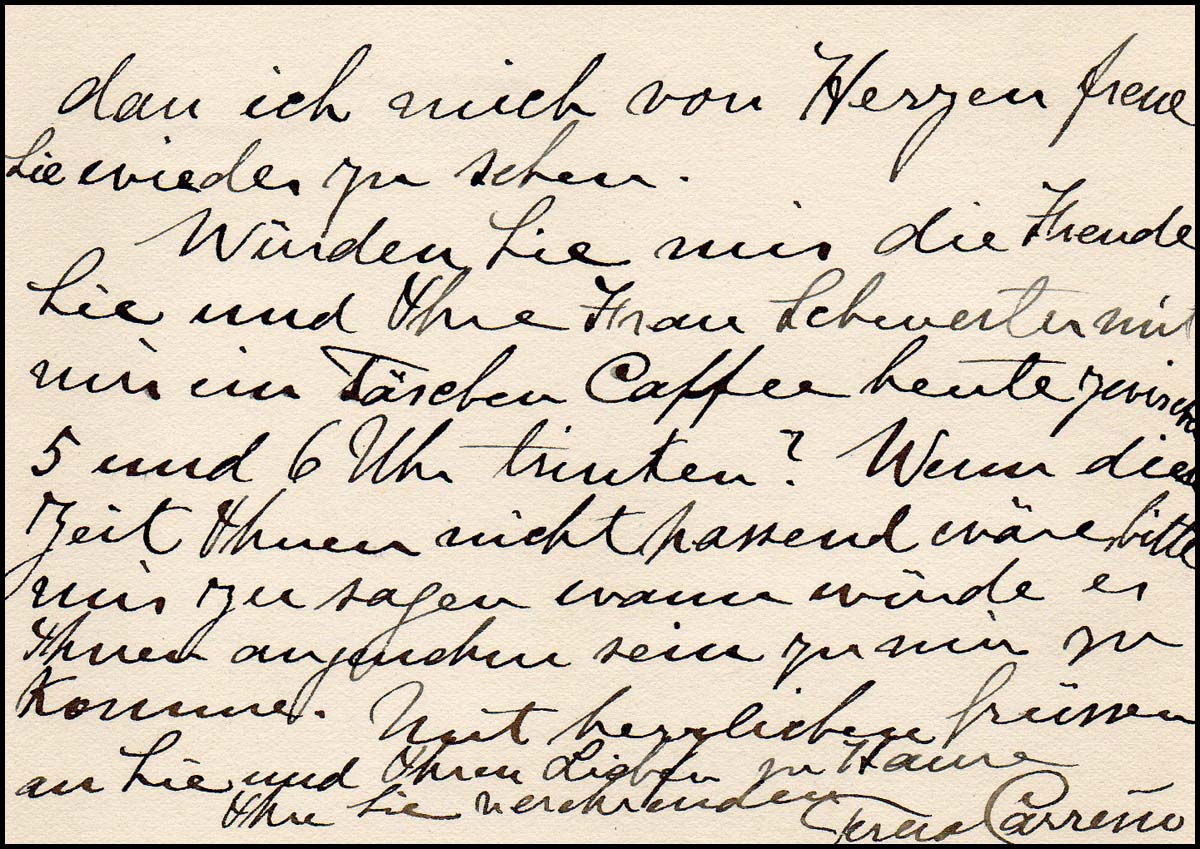 dan ich mich von Herzen freue
Sie wieder zu sehen.
Würden Sie mir die Freude
Sie und Ihre Frau Schwester mit
mir ein Täschen Caffee heute zwischen
5 und 6 Uhr trinken? Wenn diese
Zeit Ihnen nicht passend wäre, bitte
mir zu sagen wann würde es
Ihnen angenehm sein zu mir zu
kommen. Mit herzlichen Grüssen
an Sie und Ihren Lieben zu Hause
Ihre Sie verehrenden
Teresa Carreño